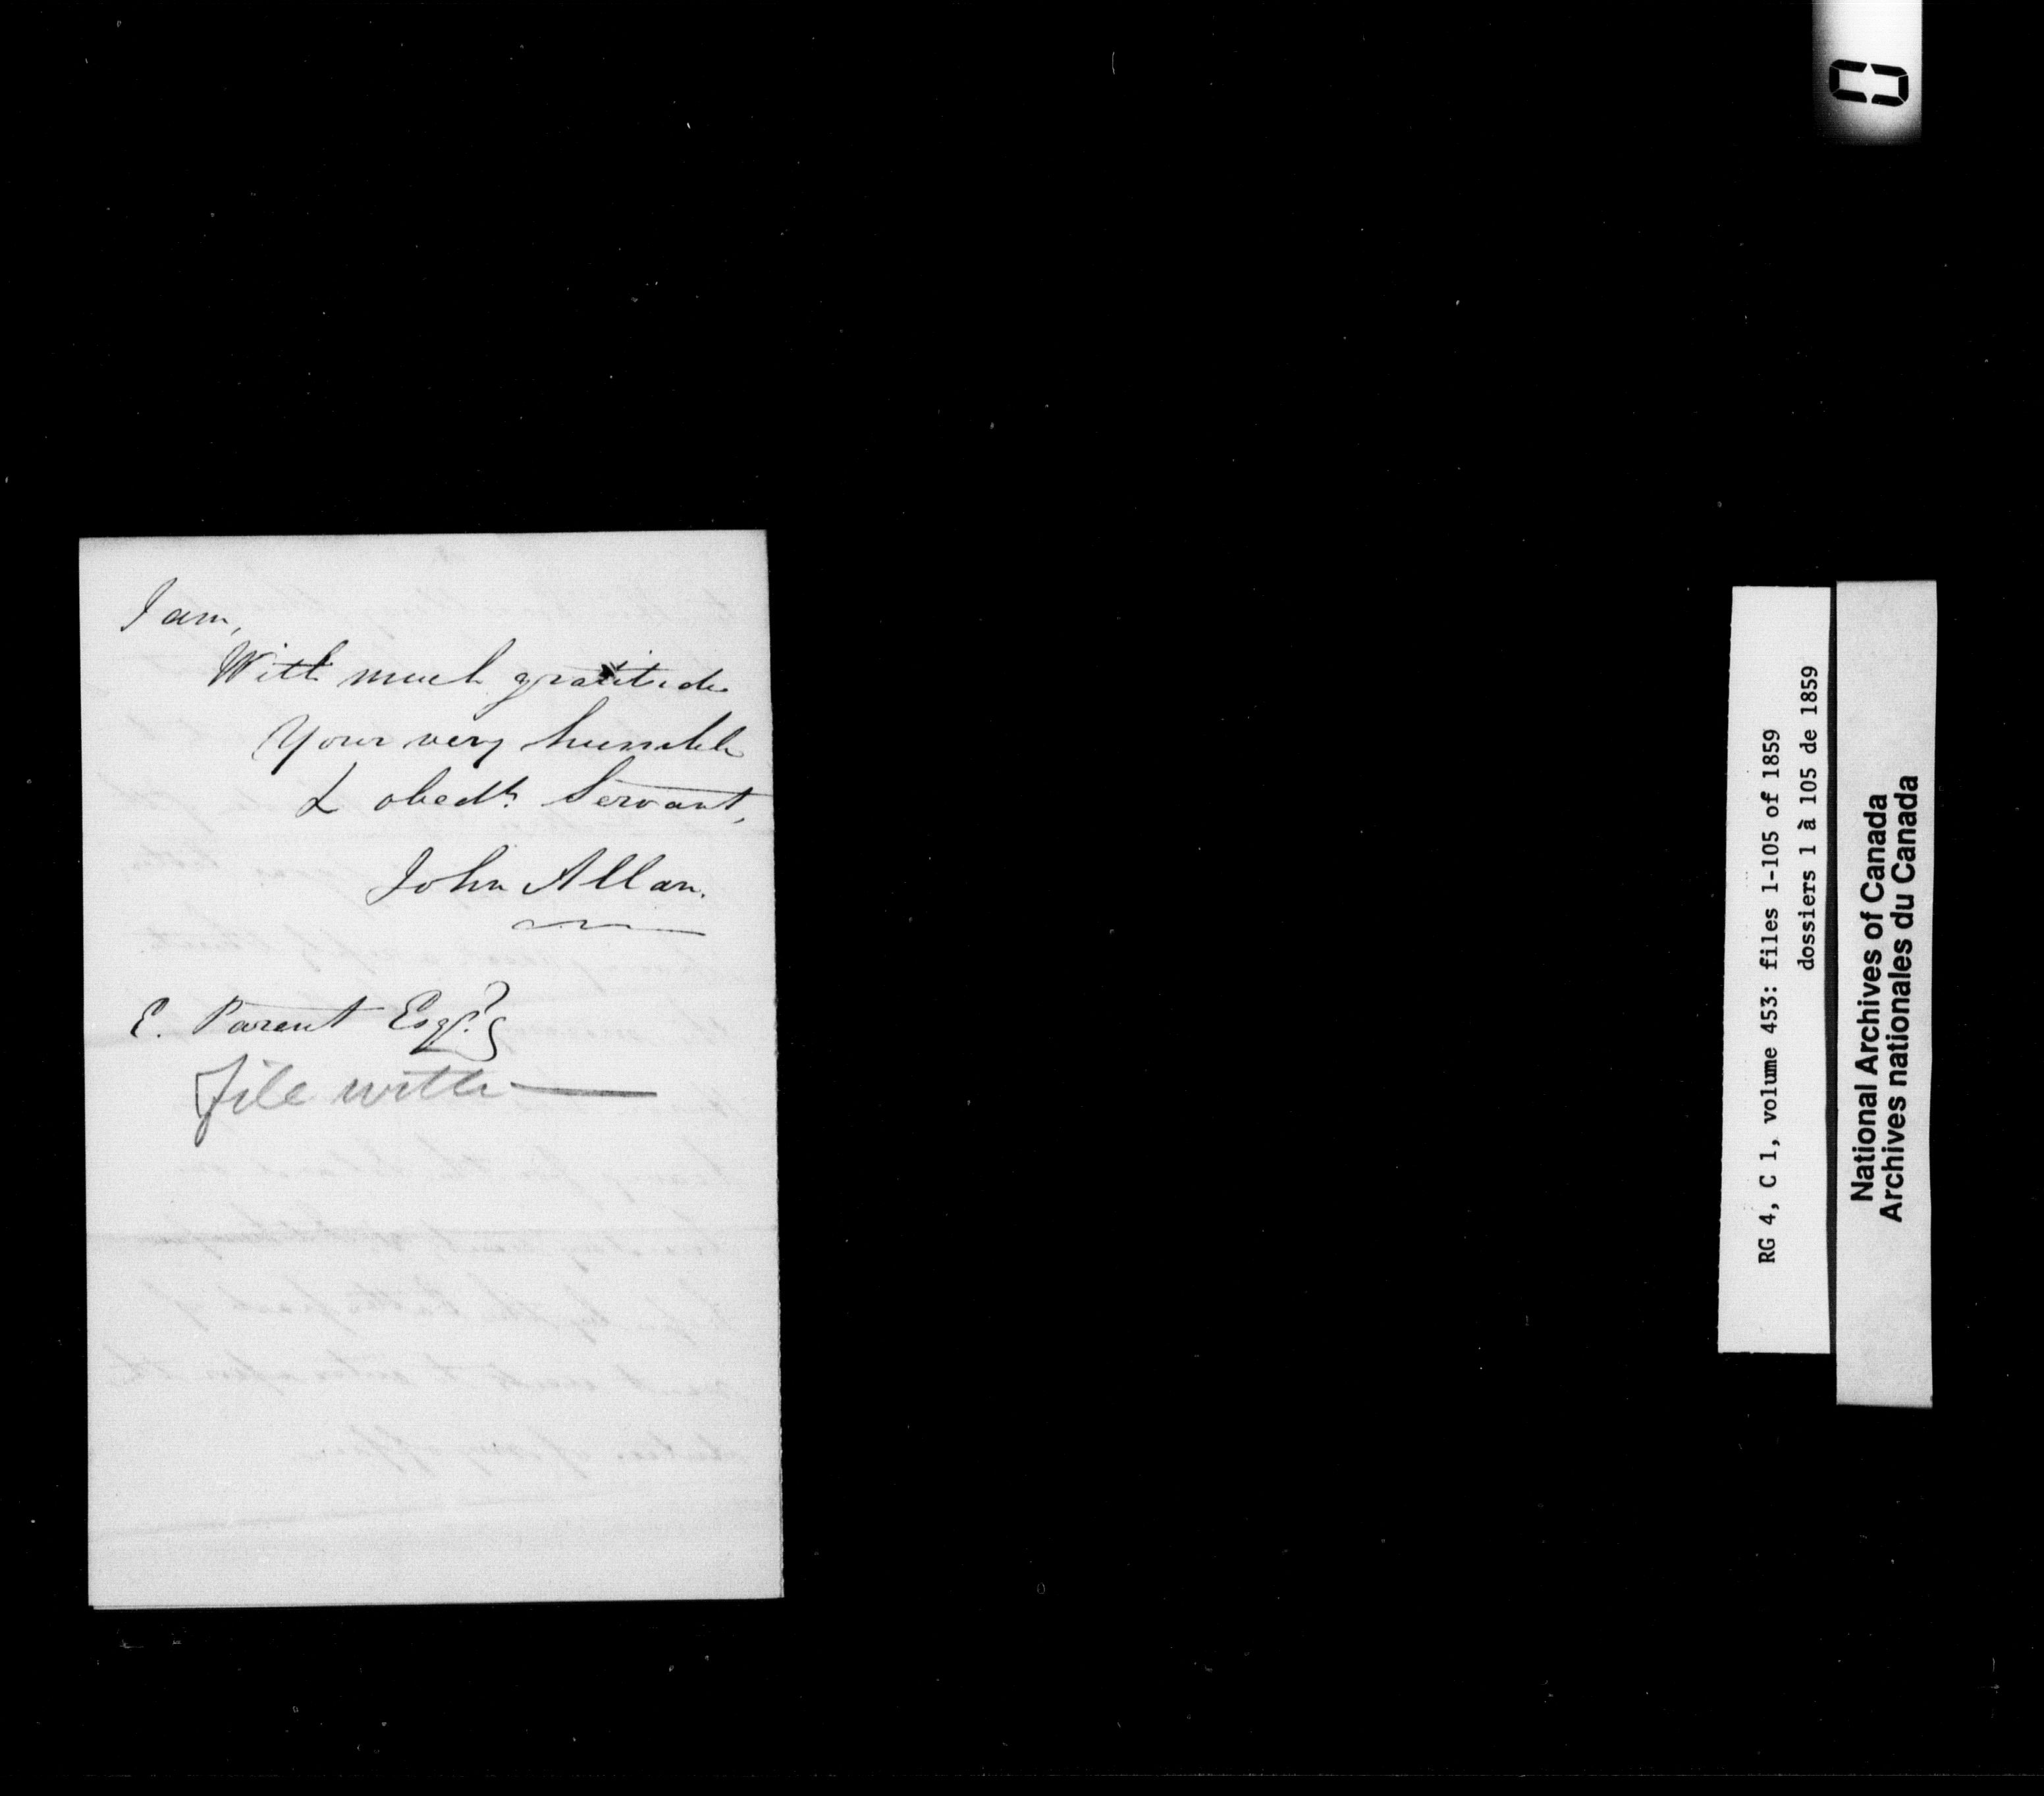 I am,
With much gratitude
Your very humble
& obedt. Servant,
John Allan.
E. Parent Esqr.
file with
RG 4, C 1, volume 453: files 1-105 of 1859
dossiers 1 à 105 de 1859
National Archives of Canada
Archives nationales du Canada